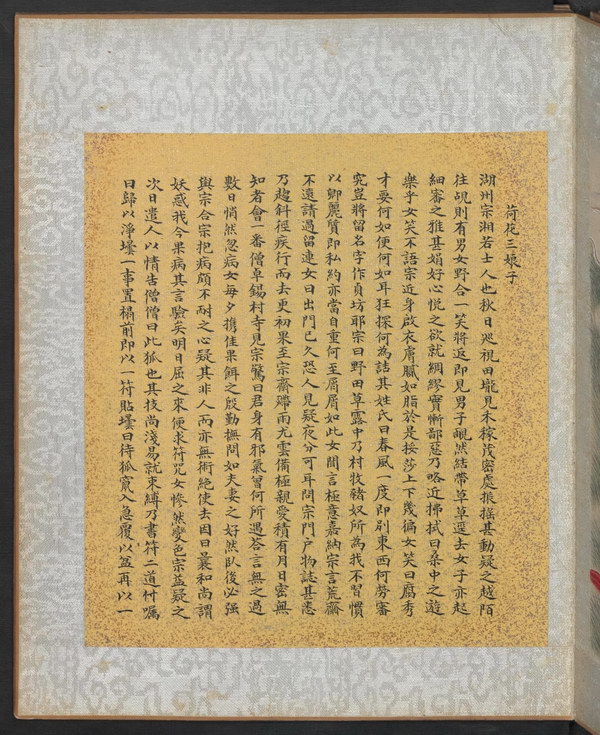 荷花三娘子
湖州宗湘若士人也秋日廵視田壠見禾稼茂密處振搖甚動疑之越陌
往覘則有男女野合一笑將返即見男子靦然結帶草草逕去女子亦起
細審之雅甚娟好心悅之欲就綢繆實慚鄙惡乃略近拂拭曰桑中之遊
樂乎女笑不語宗近身啟衣膚膩如脂於是挼莎上下幾徧女笑曰腐秀
才要何如便何如耳狂探何為詰其姓氏曰春風一度即別東西何勞審
究豈將留名字作貞坊耶宗曰野田草露中乃村牧豬奴所為我不習慣
以卿麗質即私約亦當自重何至屑屑如此女聞言極意嘉納宗言荒齋
不遠請過留連女曰出門已久恐人見疑夜分可耳問宗門戶物誌甚悉
乃趨斜徑疾行而去更初果至宗齋殢雨尤雲備極親愛積有月日密無
知者會一番僧卓錫村寺見宗驚曰君身有邪氣曾何所遇答言無之過
數日悄然忽病女每夕攜佳果餌之殷勤撫問如夫妻之好然臥後必強
與宗合宗抱病頗不耐之心疑其非人而亦無術絕使去因曰曩和尚謂
妖惑我今果病其言驗矣明日屈之來便求符咒女慘然變色宗益疑之
次日遣人以情告僧僧曰此狐也其技尚淺易就束縛乃書符二道付囑
曰歸以淨罈一事置榻前即以一符貼罈口待狐竄入急覆以盆再以一